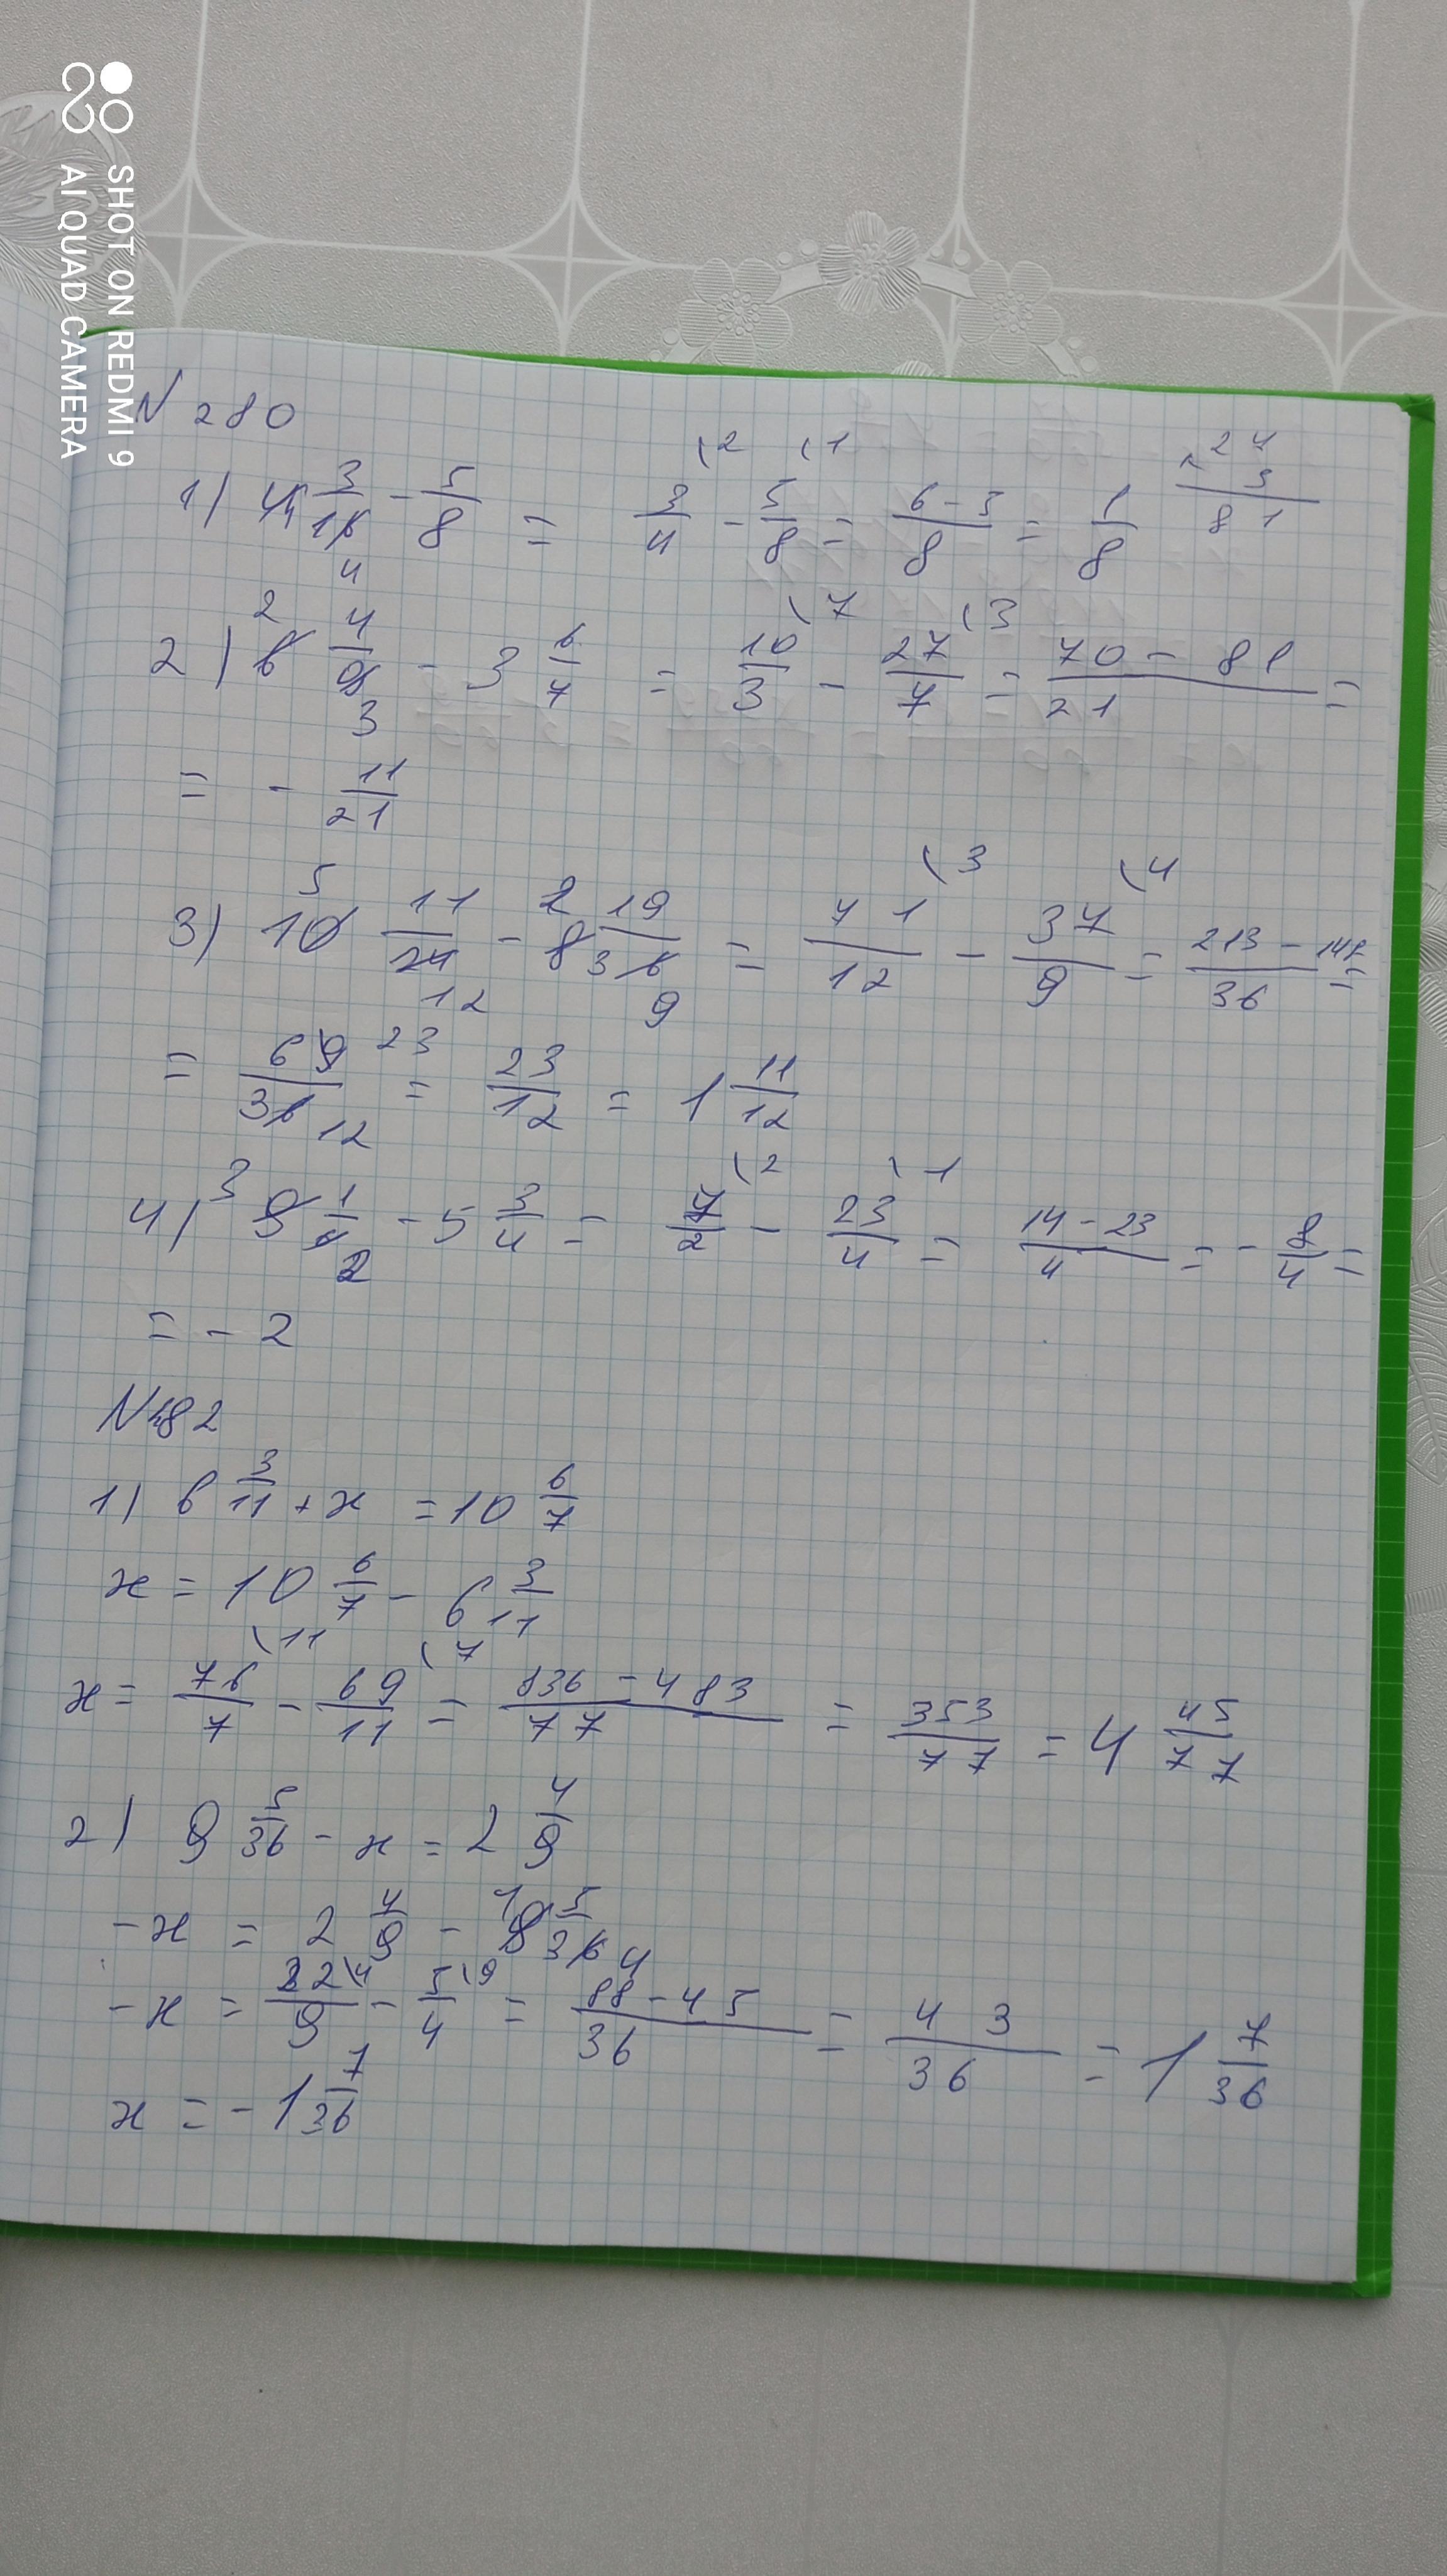 SHOT ON REDMI 9
AI QUAD CAMERA
N 280
1) 4 3/16 - 5/8 = 3/4 - 5/8 = (6-5)/8 = 1/8
4
27
3
81
2) 6 4/9 - 3 6/7 = 10/3 - 27/7 = (70 - 81)/21 =
= - 11/21
3) 10 11/24 - 8 19/36 = 71/12 - 37/9 = (213 - 148)/36 =
= 69/36 = 23/12 = 1 11/12
4) 9 1/4 - 5 3/4 = 7/2 - 23/4 = (14 - 23)/4 = - 8/4 =
= - 2
1) 6 3/11 + x = 10 6/7
x = 10 6/7 - 6 3/11
x = 76/7 - 69/11 = (836 - 483)/77 = 353/77 = 4 45/77
2) 9 5/36 - x = 2 4/9
-x = 2 4/9 - 9 5/36
-x = 22/9 - 5/4 = (88 - 45)/36 = 43/36 = 1 7/36
x = - 1 7/36